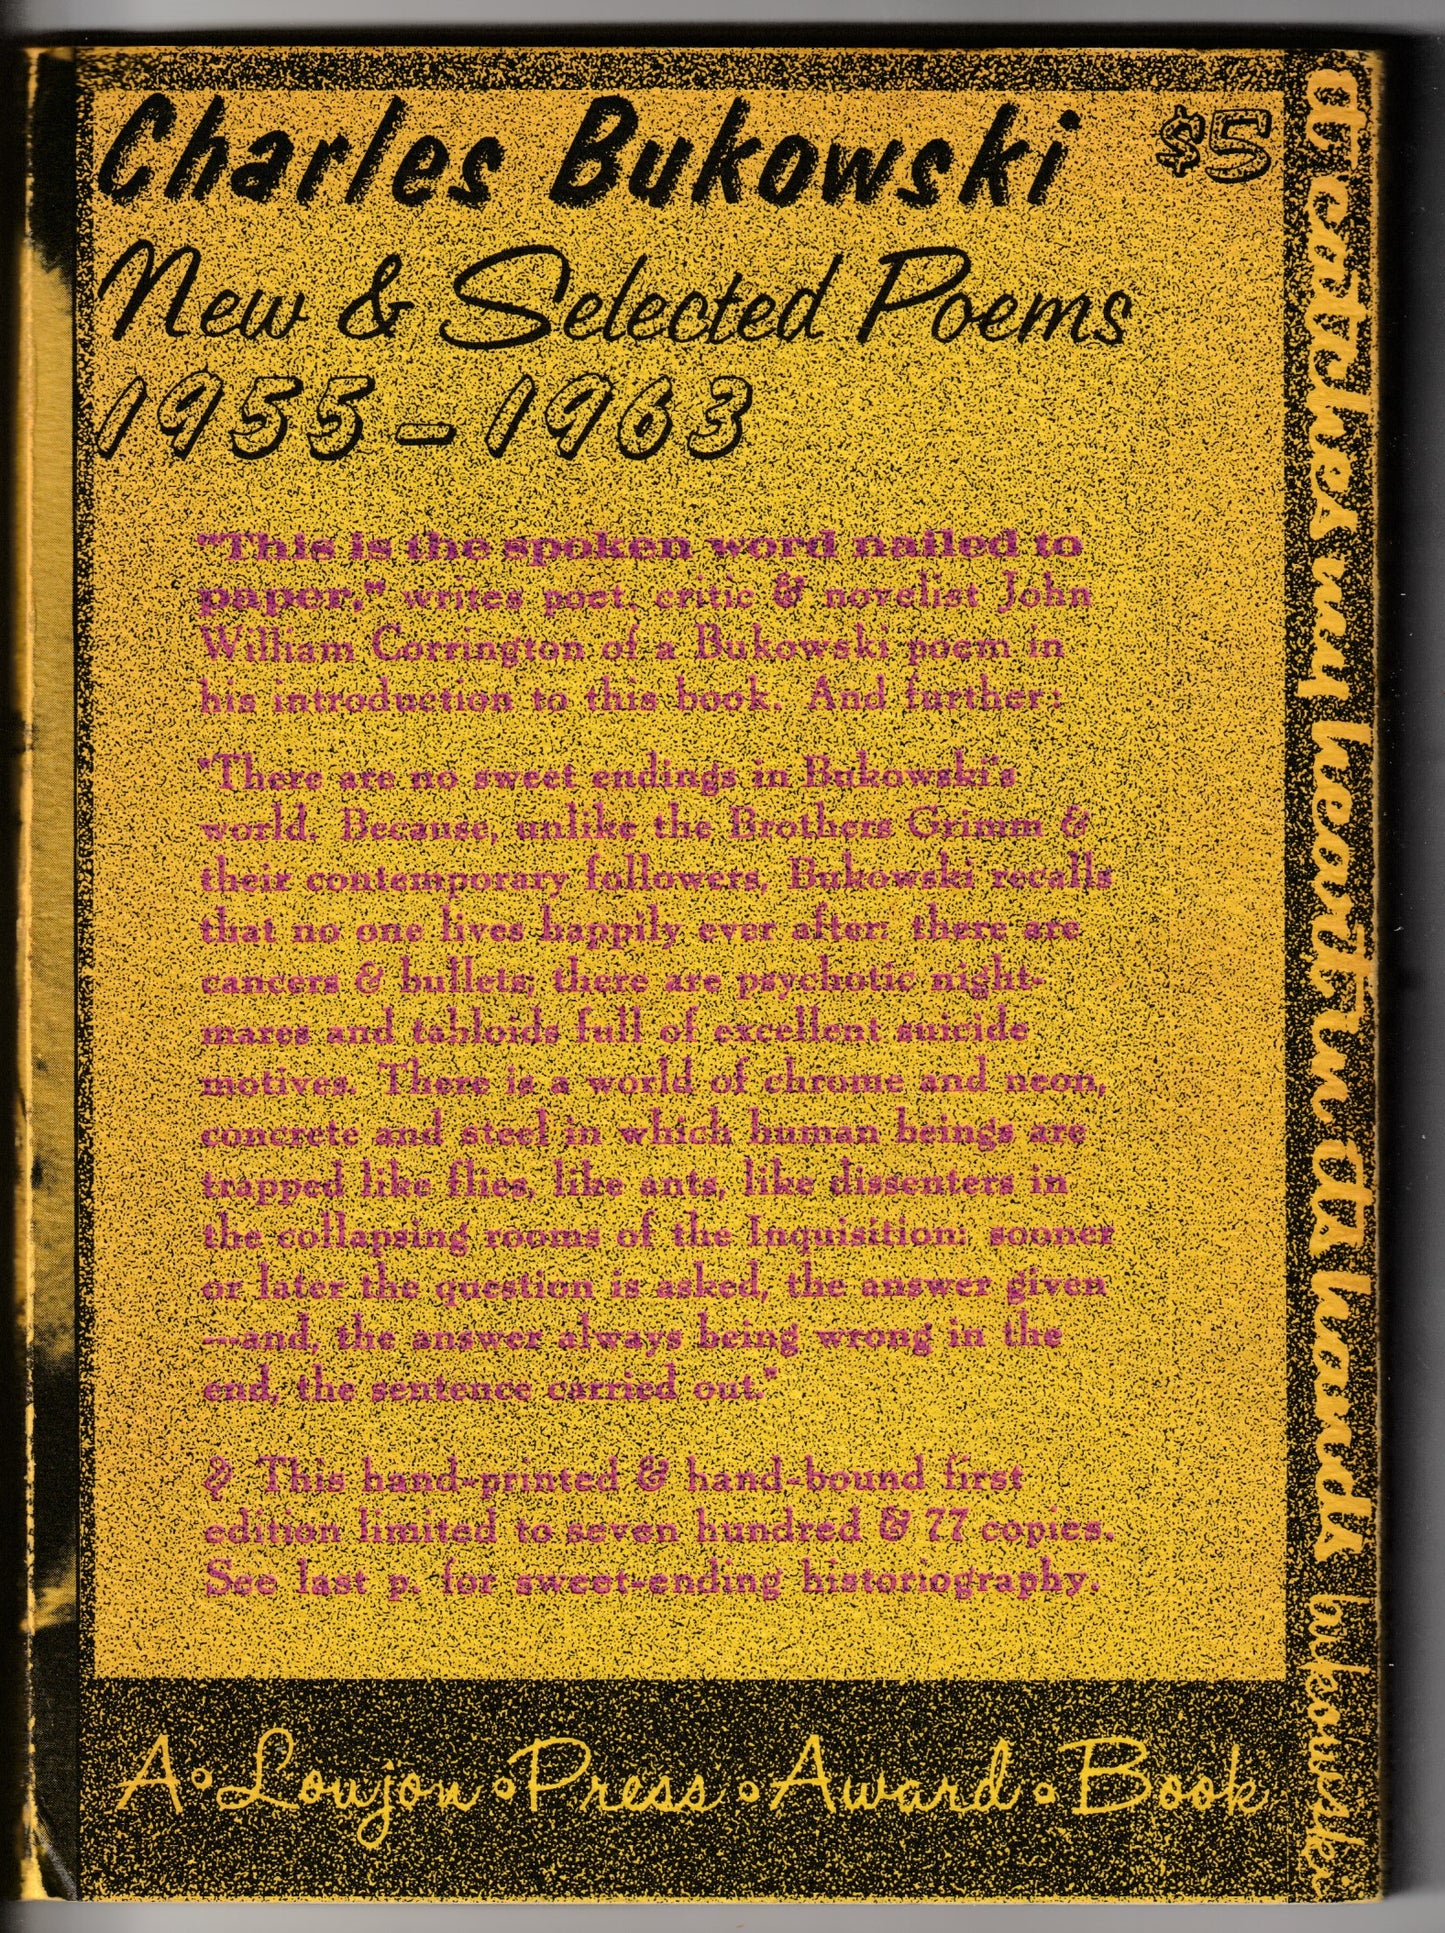 Charles Bukowski $5
New & Selected Poems
1955-1963
"This is the spoken word nailed to
paper," writes poet, critic & novelist John
William Corrington of a Bukowski poem in
his introduction to this book. And further:
"There are no sweet endings in Bukowski's
world. Because, unlike the Brothers Grimm &
their contemporary followers, Bukowski recalls
that no one lives happily ever after: there are
cancers & bullets; there are psychotic night-
mares and tabloids full of excellent suicide
motives. There is a world of chrome and neon,
concrete and steel in which human beings are
trapped like flies, like ants, like dissenters in
the collapsing rooms of the Inquisition: sooner
or later the question is asked, the answer given
—and, the answer always being wrong in the
end, the sentence carried out."
This hand-printed & hand-bound first
edition limited to seven hundred & 77 copies.
See last p. for sweet-ending historiography.
A · Loujon · Press · Award · Book
it catches my heart in its hands bukowski